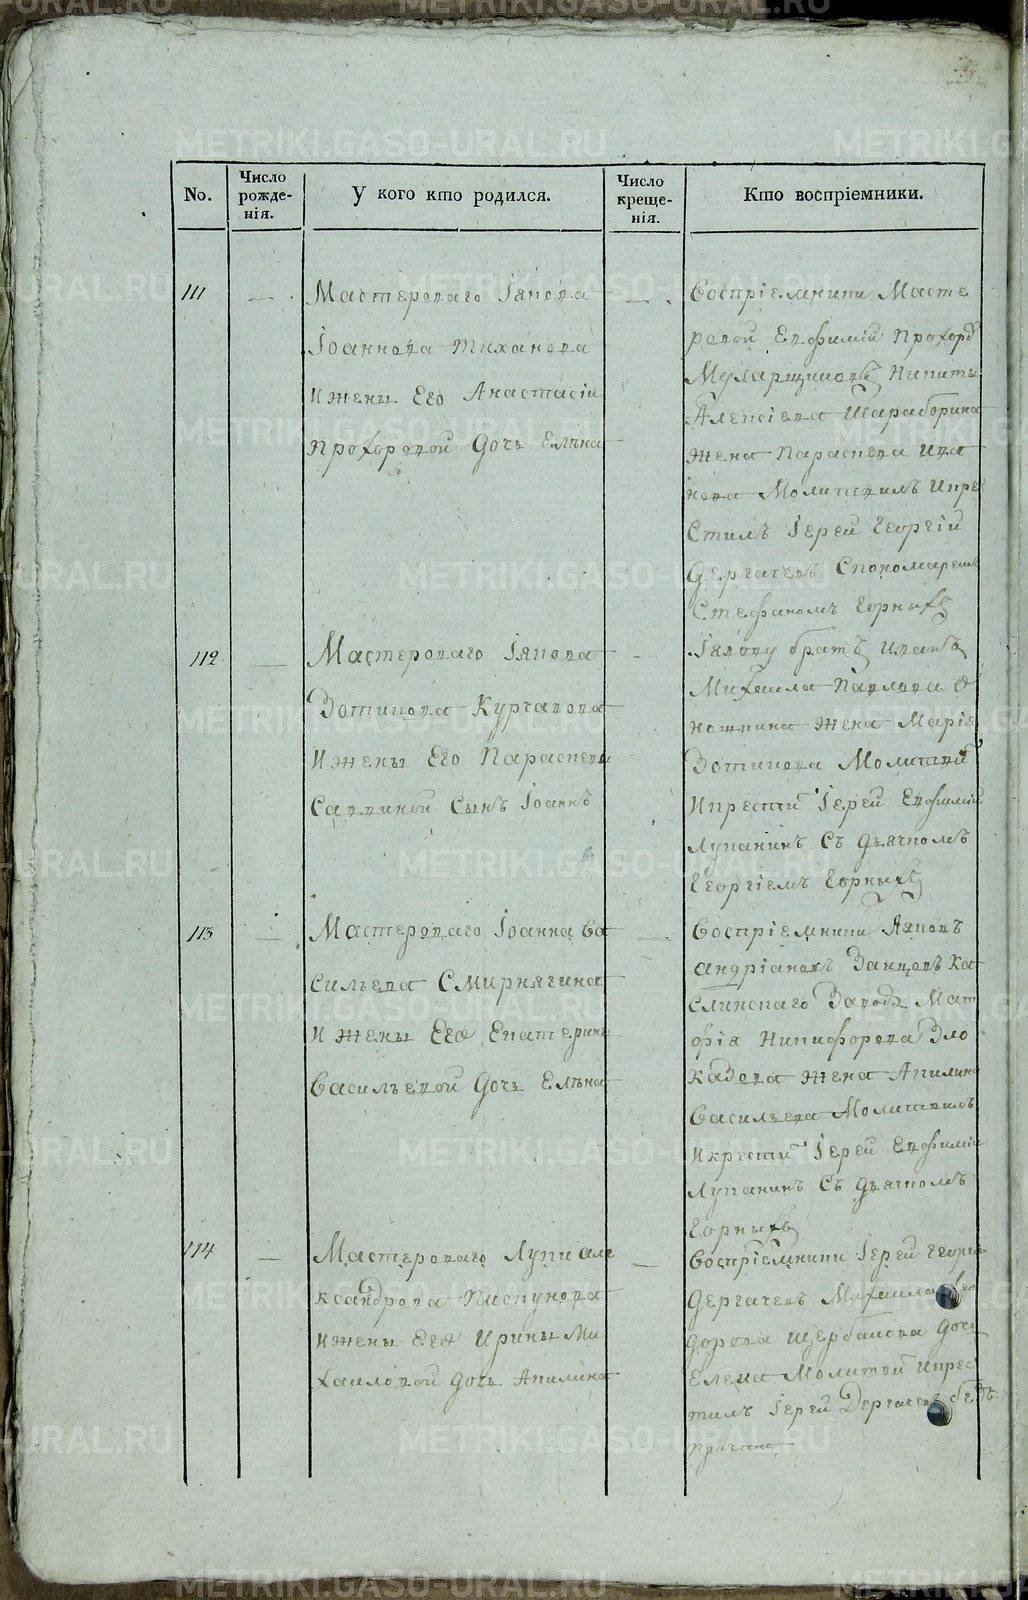 No.
Число рожде-нія.
У кого кто родился.
Число креще-нія.
Кто воспріемники.
111
Мастероваго Іякова
Іоаннова Тиханова
и жены Его Анастасіи
Прохоровой Дочь Елѣна
Воспріемники Масте
ровой Евфимій Прохоров
Муларщиковъ Никиты
Алексіева Шараборина
жена Параскева Ива
нова Молитвилъ и кре
Стилъ Іерей Георгій
Дергачевъ Спономаремъ
Стефаномъ Горныхъ
112
Мастероваго Іякова
Зотикова Курчавова
и жены Его Параскевы
Саввиной Сынъ Іоаннъ
Іякову братъ Иванъ
Михаила Павлова
жена Марія
Зотикова Молитви
и крести Іерей Евфимій
Лупанинъ Съ дьячкомъ
Георгіемъ Горныхъ
113
Мастероваго Іоанна Ва
сильева Смирнягина
и жены Его Екатерины
Васильевой Дочь Елѣна
Воспріемники Яковъ
Андріановъ Заицовъ Ка
слинскаго Завода Мат
фія Никифорова Зло
казова жена Акилина
Васильева Молитвилъ
и крести Іерей Евфимій
Лупанинъ Съ дьячкомъ
Горныхъ
114
Мастероваго Лупи але
ксандрова Пискунова
и жены Его Ирины Ми
хаиловой Дочь Акилина
Воспріемники Іерей Георгій
Дергачевъ Михаила Фео
дорова Щербакова Дочь
Елена Молитви и крес
тилъ Іерей Дергачевъ безъ
причина
METRIKI.GASO-URAL.RU